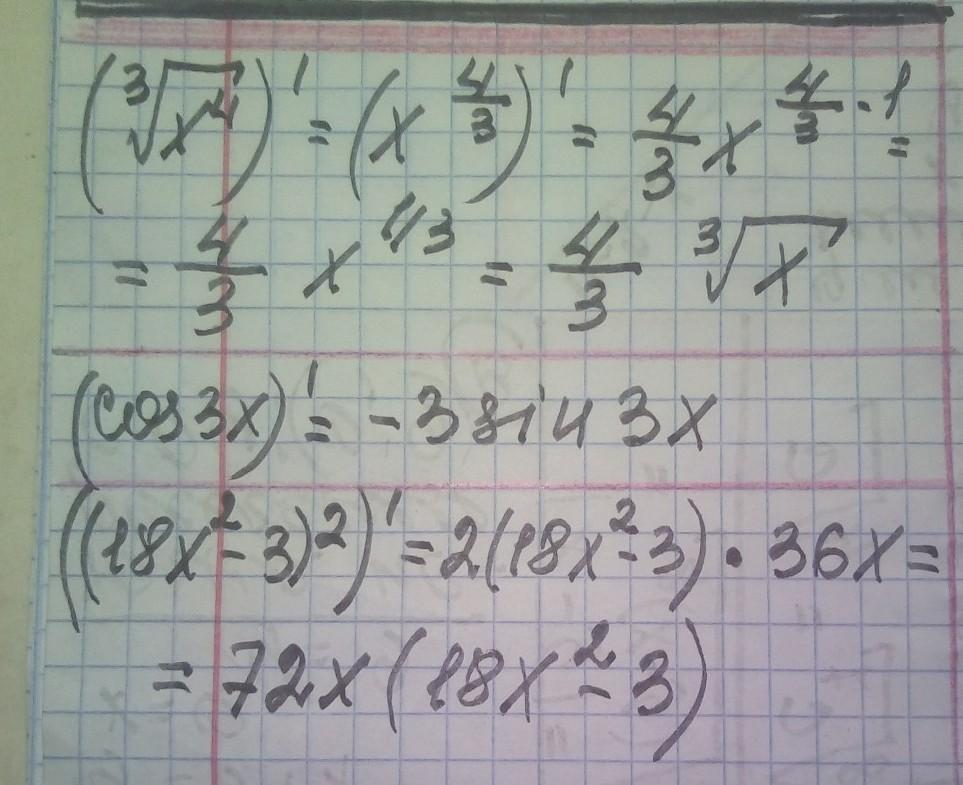 (∛x⁴)' = (x^(4/3))' = 4/3 x^(4/3 · 1) =
= 4/3 x^(1/3) = 4/3 ∛x
(cos3x)' = -3 sin 3x
((18x²-3)²)' = 2(18x²-3) · 36x =
= 72x(18x²-3)